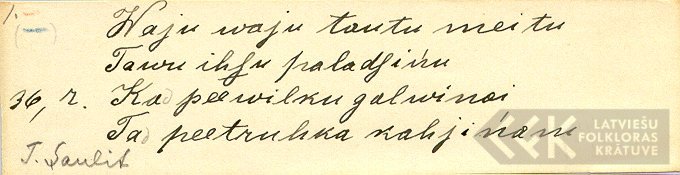 1.
Waju waju tautu meitu
Tawu ihsu paladsiņu
36, 2. Kad peewilku galwiņai
Tad peetruhka kahjiņam
T. Saulit
LATVIEŠU
FOLKLORAS
KRĀTUVE